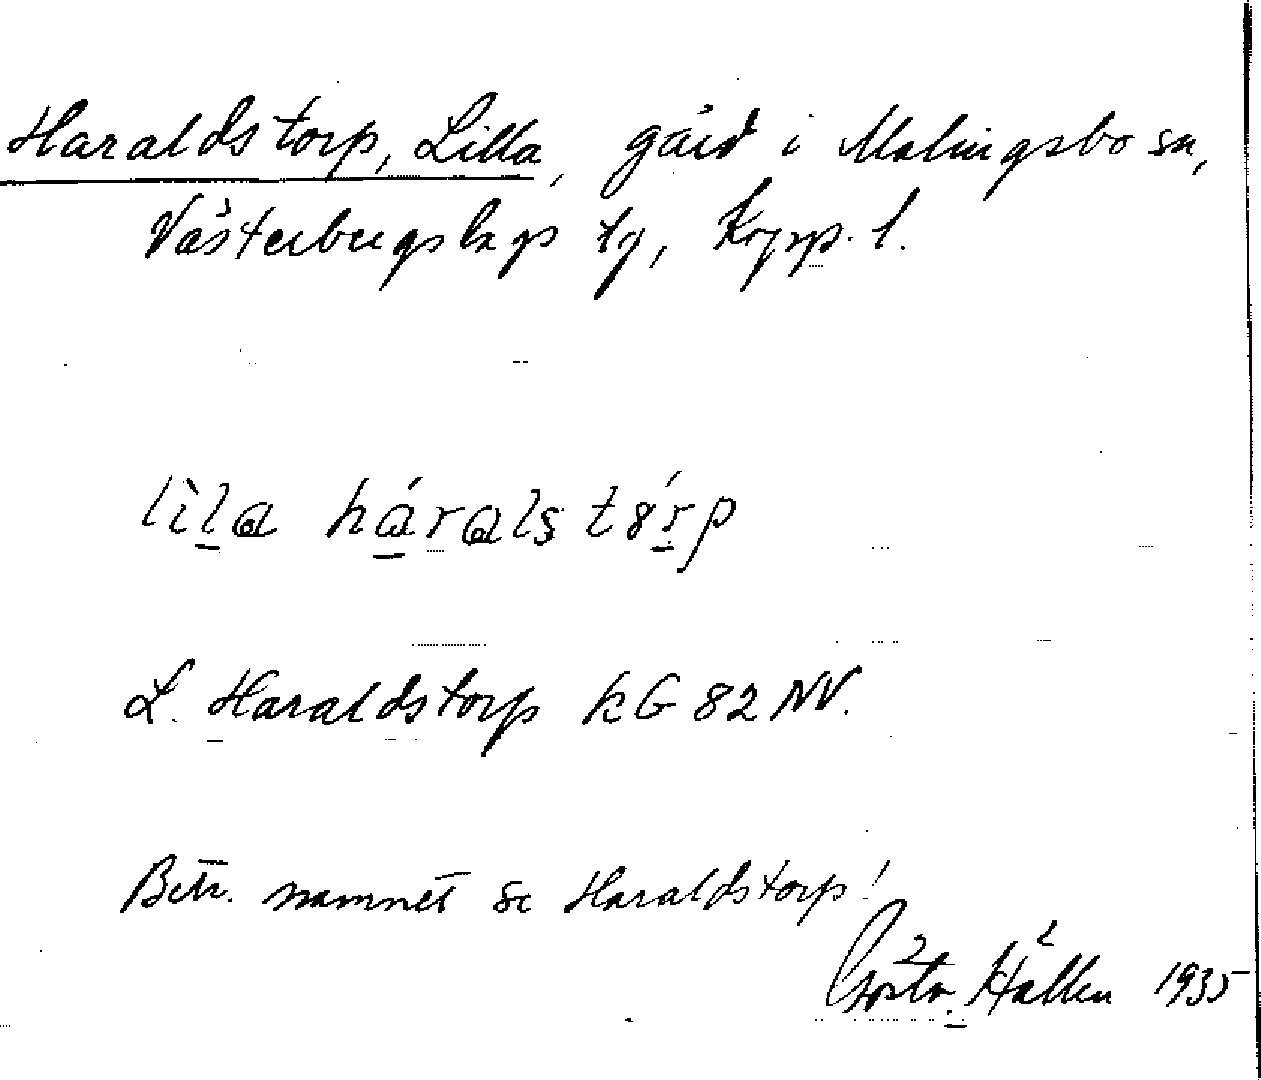 Haraldstorp, Lilla, gård i Malingsbo sn,
Västerbergslags tg, Kopp. l.
lìla háralstórp
L. Haraldstorp kG 82 NV.
Betr. namnet se Haraldstorp!
Gösta Hållén 1935